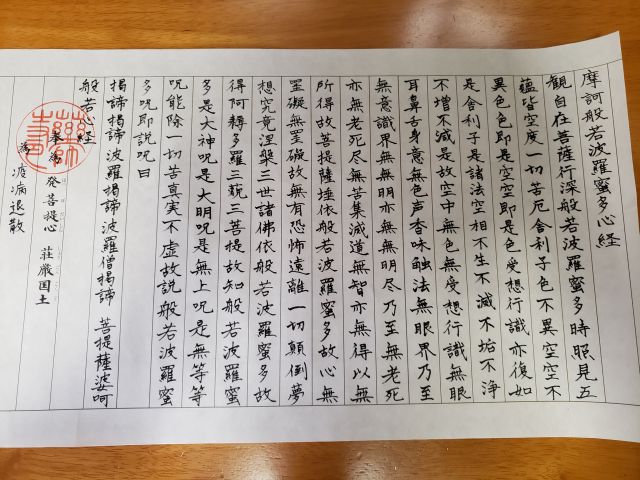 摩訶般若波羅蜜多心経
観自在菩薩行深般若波羅蜜多時照見五
蘊皆空度一切苦厄舎利子色不異空空不
異色色即是空空即是色受想行識亦復如
是舎利子是諸法空相不生不滅不垢不浄
不増不減是故空中無色無受想行識無眼
耳鼻舌身意無色声香味触法無眼界乃至
無意識界無無明亦無無明尽乃至無老死
亦無老死尽無苦集滅道無智亦無得以無
所得故菩提薩埵依般若波羅蜜多故心無
罣礙無罣礙故無有恐怖遠離一切顛倒夢
想究竟涅槃三世諸佛依般若波羅蜜多故
得阿耨多羅三藐三菩提故知般若波羅蜜
多是大神呪是大明呪是無上呪是無等等
呪能除一切苦真実不虚故説般若波羅蜜
多呪即説呪曰
掲諦掲諦波羅掲諦波羅僧掲諦 菩提薩婆呵
般若心経
奉為 発菩提心 荘厳国土
為 疫病退散